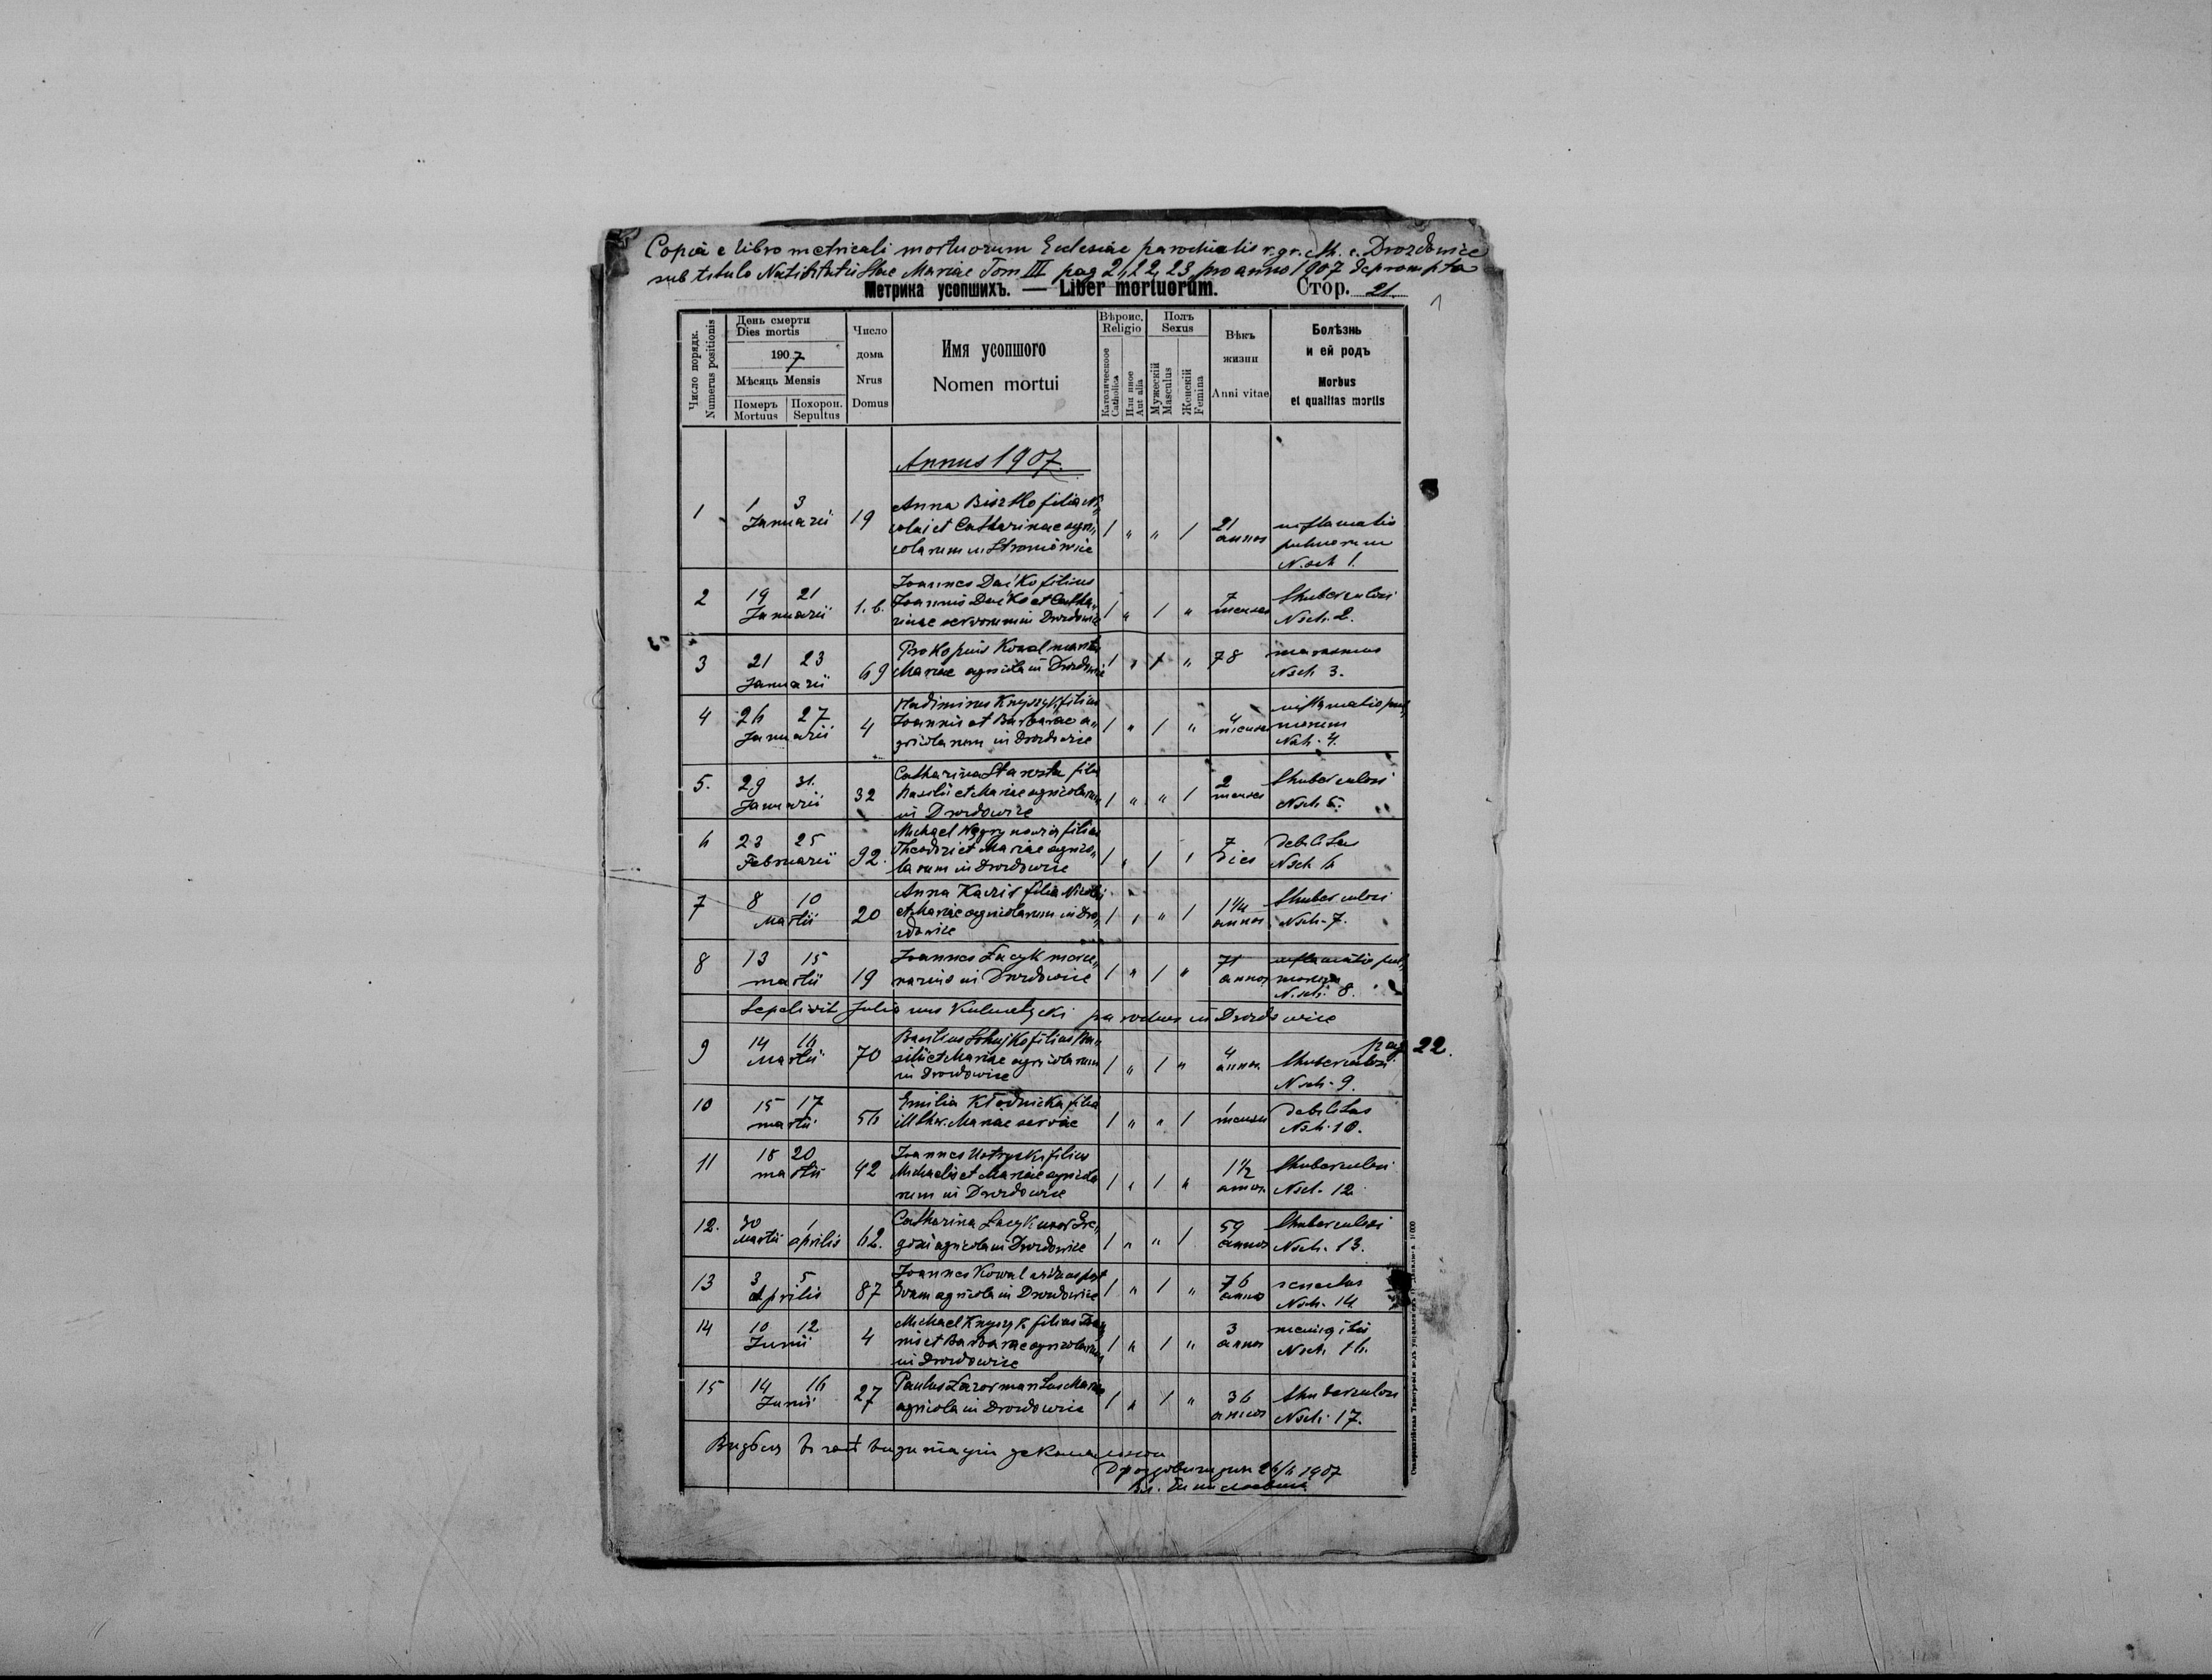 Copia e libro metricali mortuorum Eclesiae parochialis r. gr. cth. e. Drozdowice
sub titulo Nativitatis Stae Mariae Tom III pag 21, 22, 23, pro anno 1907 deprompta
Метрика усопшихъ. — Liber mortuorum. Стор. 21
Число порядк.
Numerus positionis
День смерти
Dies mortis
1907
Мѣсяць Mensis
Померъ Похорон.
Mortuus Sepultus
Число
дома
Nrus
Domus
Имя усопшого
Nomen mortui
Вѣроис.
Religio
Католическое
Catholica
Или иное
Aut alia
Полъ
Sexus
Мужескій
Masculus
Женскій
Femina
Вѣкъ
жизни
Anni vitae
Болѣзнь
и ей родъ
Morbus
et qualitas mortis
Annus 1907.
1 1 3 Januarii 19
Anna filia Ni,,
colai et Catharinae agri,,
colarum in
1 " " 1 21 annos
inflamatio
pulmorum
N. sch 1.
2 19 21 Januarii 1. b.
Joannes filius
Joannis et Catha,,
rinae servorum in Drozdowice
1 " 1 " 7 menses
thuberculosi
N sch. 2.
3 21 23 Januarii 69
Prokopius Kowal
Mariae agricola in Drozdowice
1 " 1 " 78
marasmus
N sch 3.
4 26 27 Januarii 4
Vladimirus Knyszyk filius
Joannis et Barbarae a,,
gricolarum in Drozdowice
1 " 1 " 4 menses
inflamatio pul,,
monum
Nsch. 4.
5. 29 31. Januarii 32
Catharina Starosta filia
Basilii et Mariae agricolarum
in Drozdowice
1 " " 1 2 menses
thuberculosi
N sch 5.
6 23 25 Februarii 92.
Michael filius
Theodori et Mariae agrico,,
larum in Drozdowice
1 " 1 " 7 dies
debilitas
N sch 6
7 8 10 Martii 20
Anna filia Nicolai
et Mariae agricolarum in Dro,,
zdowice
1 " " 1 1¼ annos
thuberculosi
N sch. 7.
8 13 15 martii 19
Joannes Łacyk merce,,
narius in Drozdowice
1 " 1 " 71 annos
inflamatio pul,,
monum
N. sch. 8.
Sepelivit Julianus parochus in Drozdowice
9 14 16 Martii 70
Basilius filius Ba,,
silii et Mariae agricolarum
in Drozdowice
1 " 1 " 4 annos
pag 22.
thuberculosi
N sch. 9.
10 15 17 martii 56
Emilia Kłodnicka filia
illthr. Mariae servae
1 " " 1 1 menses
debilitas
Nsch. 10.
11 18 20 martii 42
Joannes Ustrycki filius
Michaelis et Mariae agricola
rum in Drozdowice
1 " 1 " 1½ annos
thuberculosi
N sch. 12
12. 30 Martii 1 aprilis 62.
Catharina Łacyk uxor Gre,,
gorii agricola in Drozdowice
1 " " 1 59 annos
thuberculosi
N sch. 13.
13 3 5 Aprilis 87
Joannes Kowal viduus post
Evam agricola in Drozdowice
1 " 1 " 76 annos
senectus
N sch. 14
14 10 12 Junii 4
Michael Knyszyk filius Joan
nis et Barbarae agricolarum
in Drozdowice
1 " 1 " 3 annos
meningitis
N sch. 16.
15 14 16 Junii 27
Paulus Lazor maritus Mariae
agricola in Drozdowice
1 " 1 " 36 annos
thuberculosi
N sch. 17.
1907